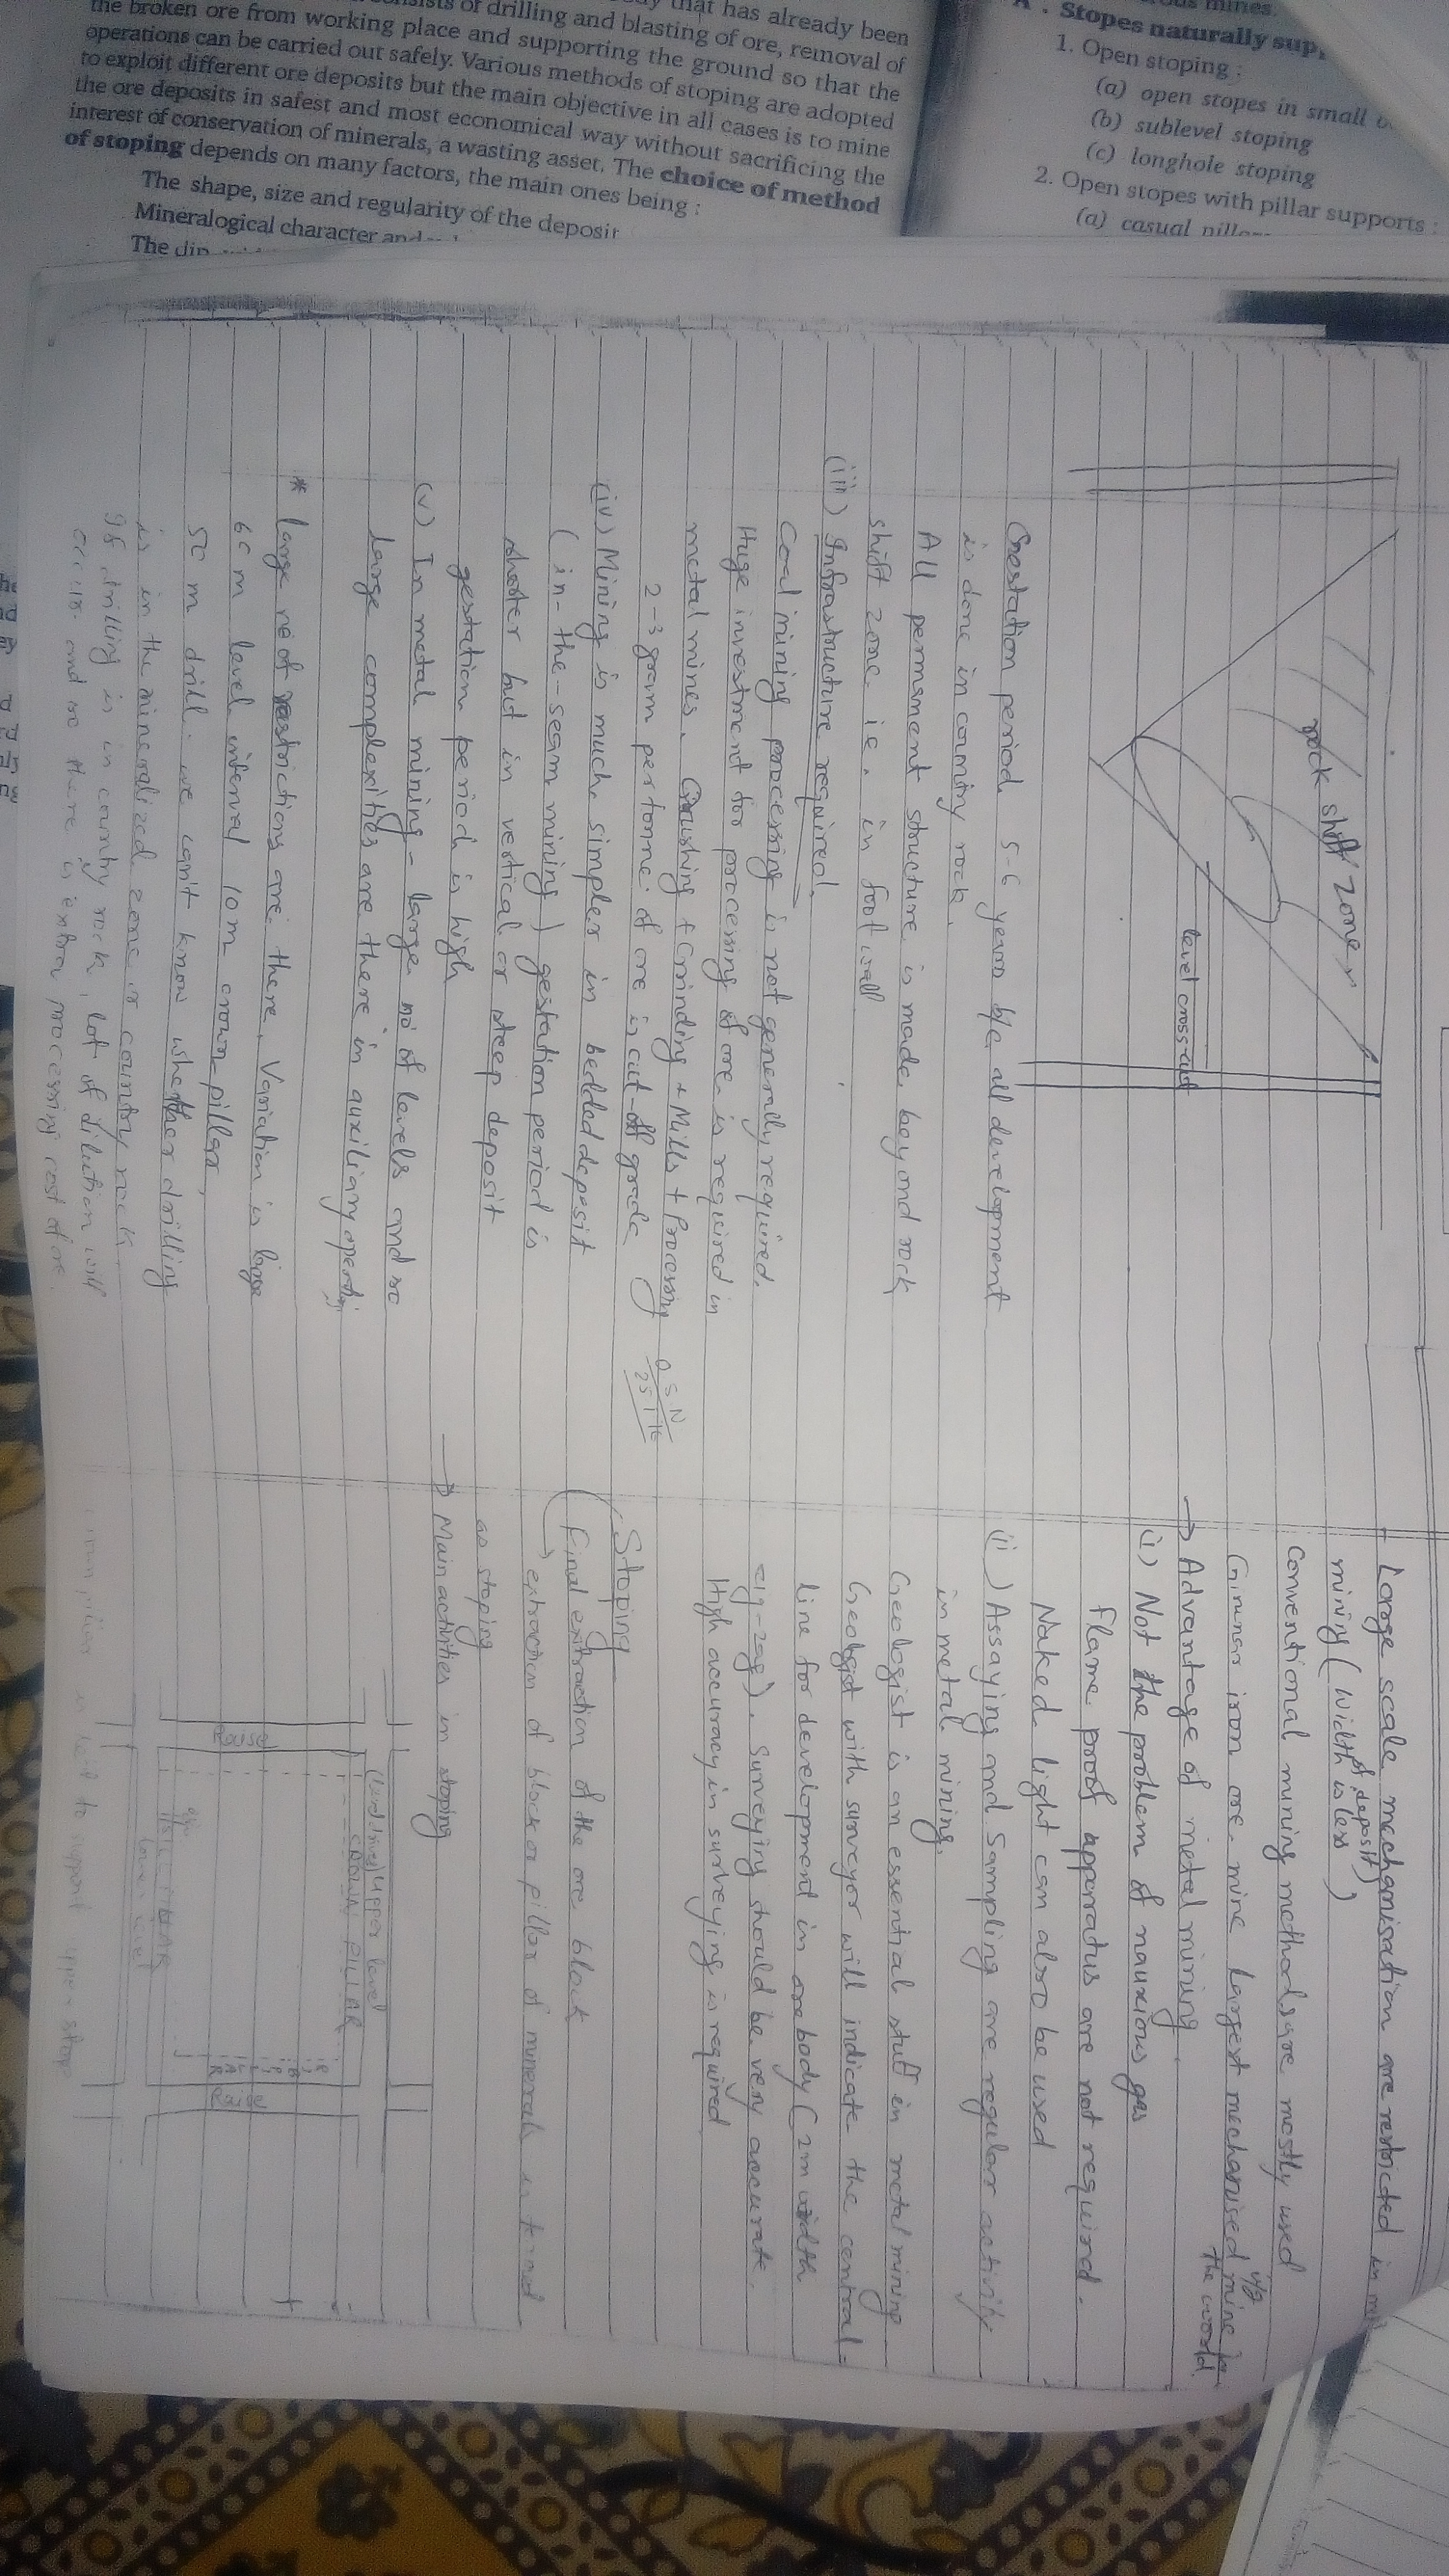 rock shift zone
level cross-cut
Gestation period 5-6 years b/c all development
is done in country rock.
All permanent structure is made beyond rock
shift zone i.e. in foot wall
(iii) Infrastructure required.
Coal mining processing is not generally required.
Huge investment for processing of ore is required in
metal mines. Crushing + Grinding + Mills + Processing
2-3 gram per tonne of ore is cut-off grade
(iv) Mining is much simpler in bedded deposit
(in-the-seam mining) gestation period is
shorter but in vertical or steep deposit
gestation period is high
(v) In metal mining - large no of levels and so
large complexities are there in auxiliary
* large no of restrictions are there. Variation is large
60 m level interval 10m crown pillar,
50 m drill. we can't know whether drilling
is in the mineralized zone or country rock.
If drilling is in country rock, lot of dilution will
occur and so there is extra processing cost of ore.
Large scale mechanisation are restricted in
mining (Width of deposit is less)
Conventional mining methods are mostly used
iron ore mine largest mechanised u/g mine in
the world.
→ Advantage of metal mining
(i) Not the problem of nauxious gas
flame proof apparatus are not required.
Naked light can also be used
(ii) Assaying and Sampling are regular activity
in metal mining.
Geologist is an essential stuff in metal mining
Geologist with surveyor will indicate the central-
line for development in ore body (2m width
zig-zag). Surveying should be very accurate.
High accuracy in surveying is required
Stoping
Final extraction of the ore block
→ extraction of block or pillar of minerals is termed
as stoping
→ Main activities in stoping
(Level drive) Upper level
CROWN PILLAR
Raise
RIB PILLAR
Raise
SILL PILLAR
lower level
crown pillar is left to support upper stope
A. Stopes naturally
1. Open stoping:
(a) open stopes in small
(b) sublevel stoping
(c) longhole stoping
2. Open stopes with pillar supports:
(a) casual
of drilling and blasting of ore, removal of
the broken ore from working place and supporting the ground so that the
operations can be carried out safely. Various methods of stoping are adopted
to exploit different ore deposits but the main objective in all cases is to mine
the ore deposits in safest and most economical way without sacrificing the
interest of conservation of minerals, a wasting asset. The choice of method
of stoping depends on many factors, the main ones being:
The shape, size and regularity of the deposit
Mineralogical character
The